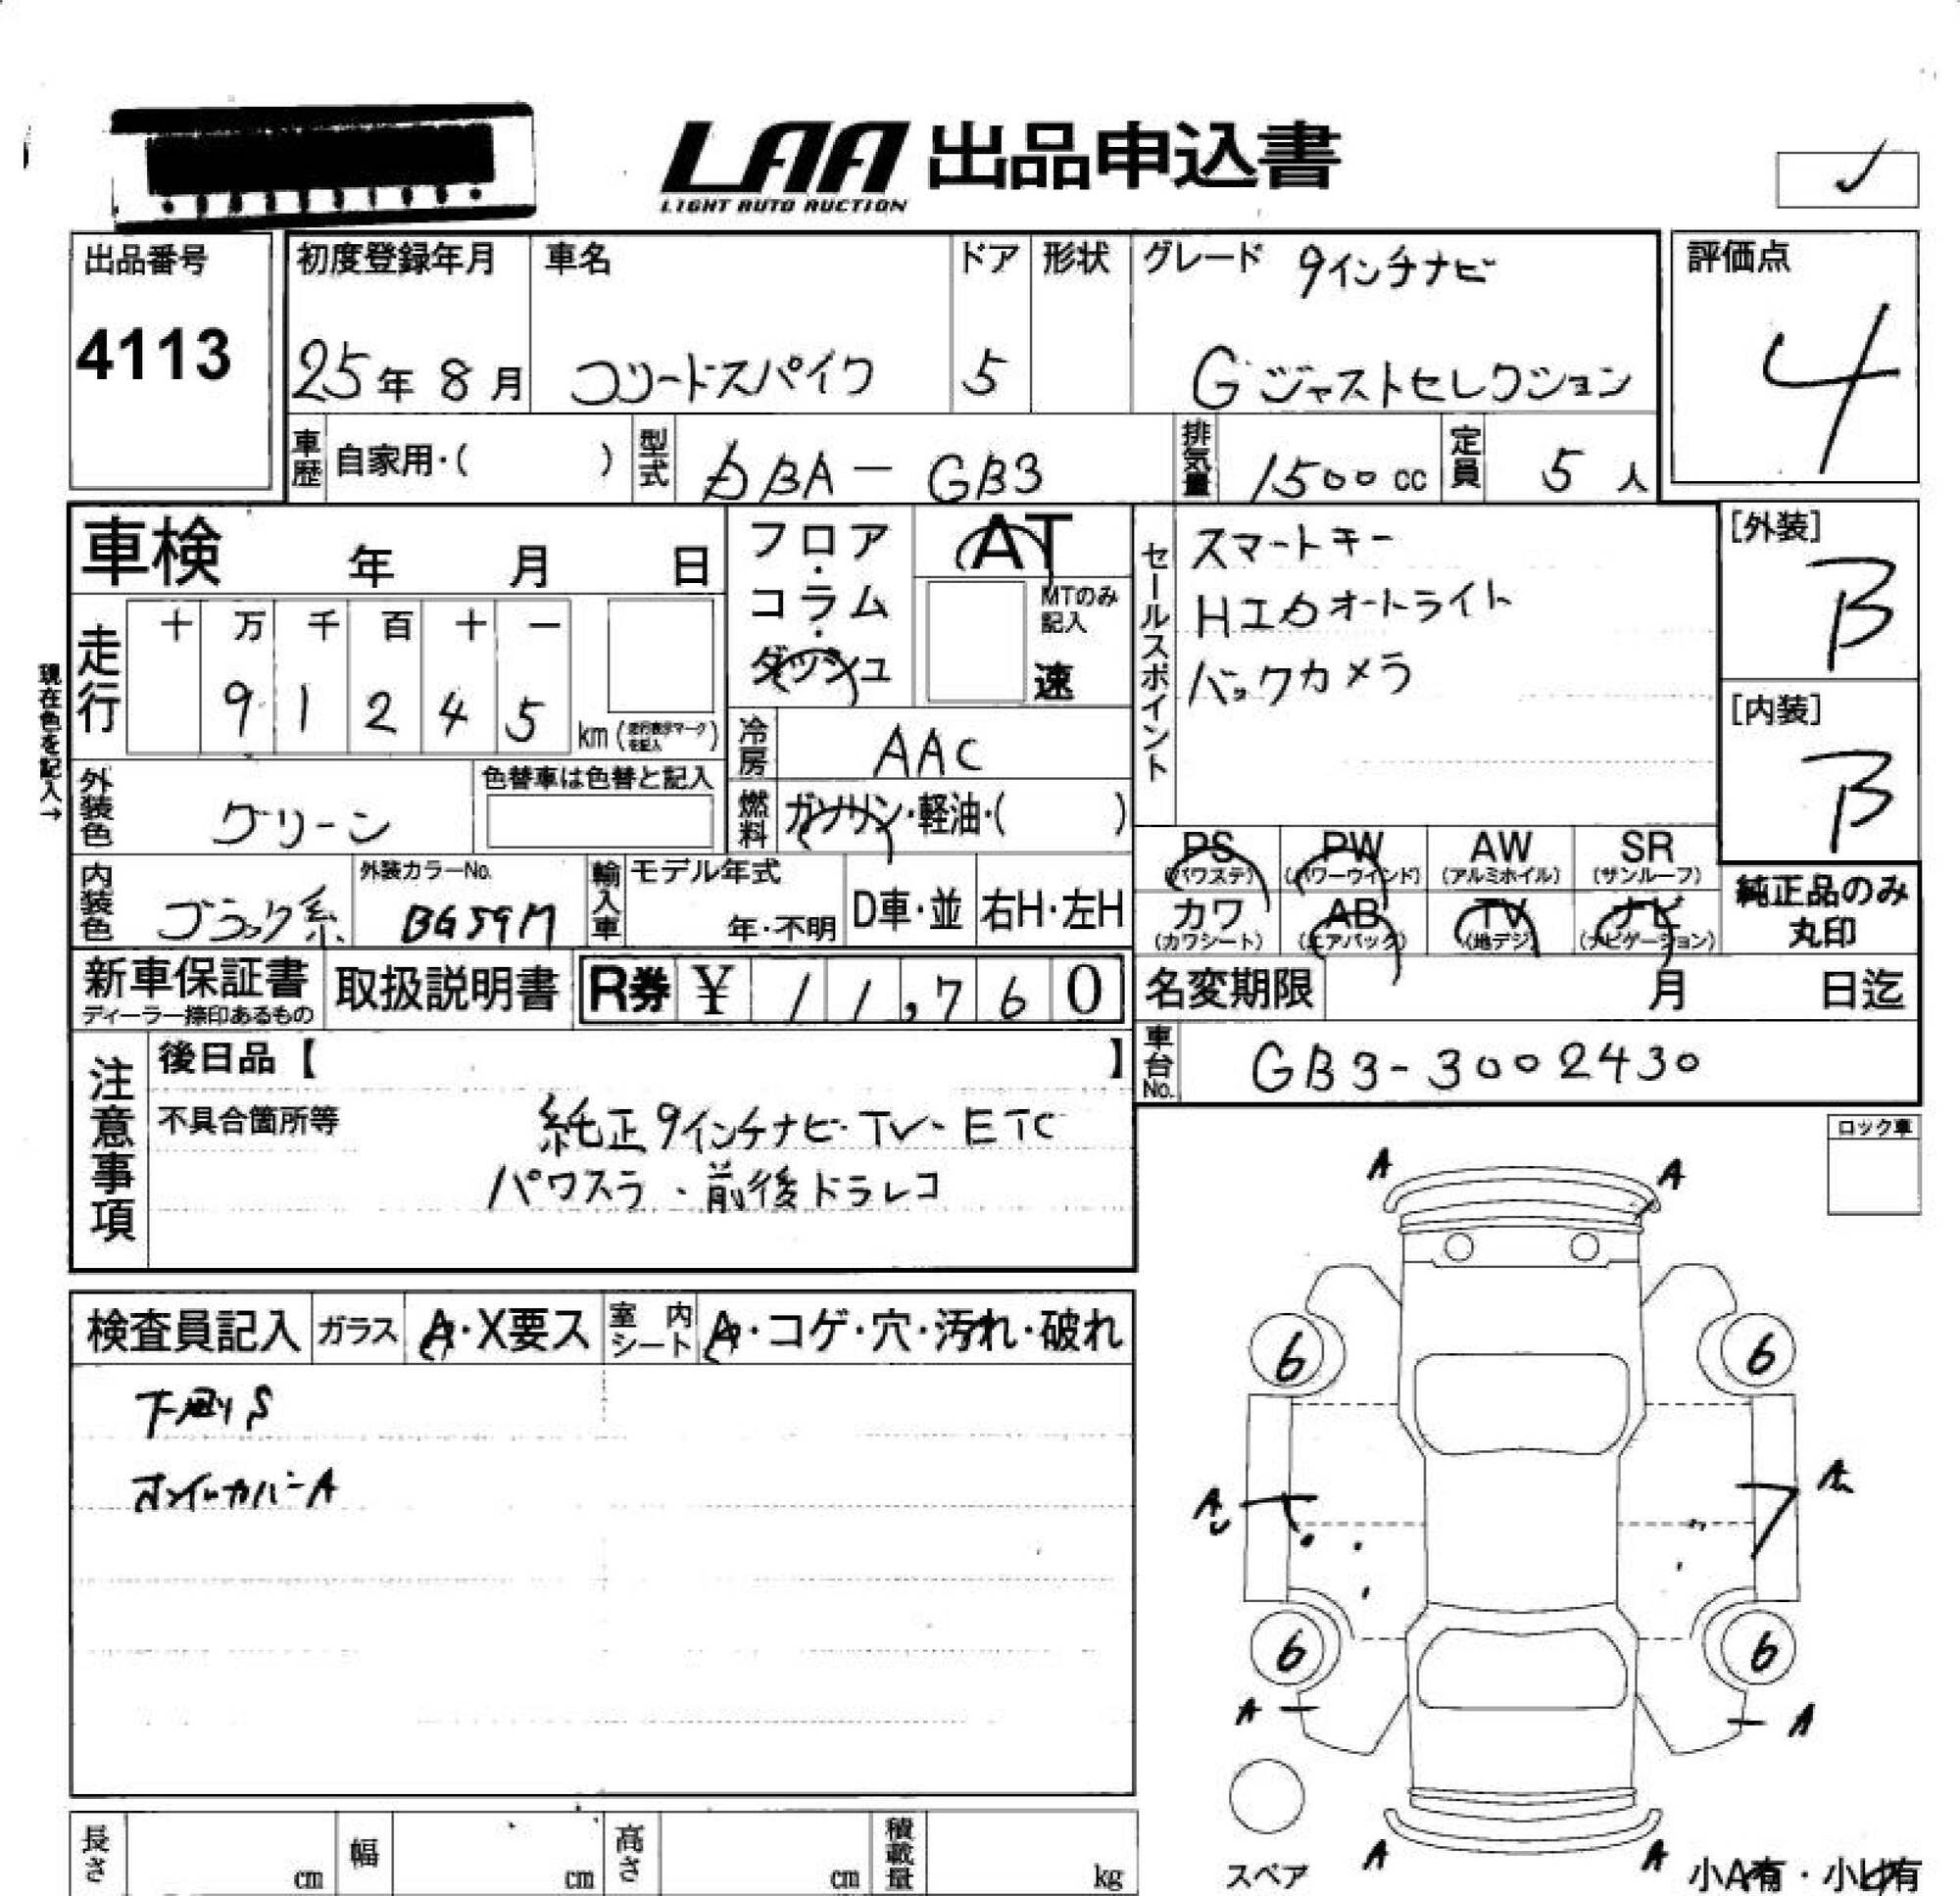 LAA 出品申込書
LIGHT AUTO AUCTION
出品番号
4113
初度登録年月
25年 8月
車名
フリードスパイク
ドア
5
形状
グレード 9インチナビ
G ジャストセレクション
評価点
4
車歴 自家用・( )
型式 DBA-GB3
排気量 1500 cc
定員 5 人
車検 年 月 日
フロア・コラム・ダッシュ
AT
MTのみ記入
速
セールスポイント
スマートキー
HIDオートライト
バックカメラ
[外装]
B
[内装]
B
現在色を記入→
走行
十 万 千 百 十 一
9 1 2 4 5
km
冷房 AAC
外装色 グリーン
色替車は色替と記入
燃料 ガソリン・軽油・( )
内装色 ブラック系
外装カラーNo.
BG59M
輸入車 モデル年式
年・不明
D車・並
右H・左H
PS (パワステ)
PW (パワーウインド)
AW (アルミホイル)
SR (サンルーフ)
カワ (カワシート)
AB (エアバック)
TV (地デジ)
ナビ (ナビゲーション)
純正品のみ丸印
新車保証書
ディーラー捺印あるもの
取扱説明書
R券 ¥ 11,760
名変期限 月 日迄
車台No. GB3-3002430
注意事項
後日品【 】
不具合箇所等
純正9インチナビ・TV・ETC
パワスラ・前後ドラレコ
ロック車
A A
検査員記入
ガラス A・X要ス
室内シート A・コゲ・穴・汚れ・破れ
下廻りS
ホイルカバーA
6 6
A A
6 6
A A
A A
スペア
小A有・小U有
長さ cm
幅 cm
高さ cm
積載量 kg